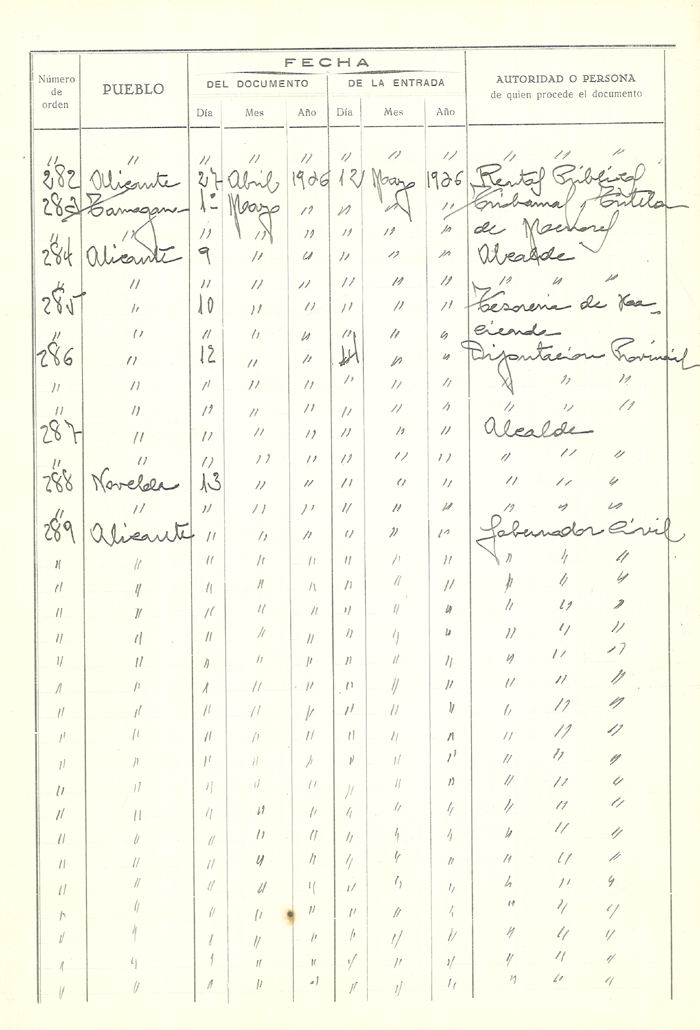 FECHA
Número de orden PUEBLO DEL DOCUMENTO DE LA ENTRADA AUTORIDAD O PERSONA de quien procede el documento
Día Mes Año Día Mes Año
" " " " " " " " " " "
282 Alicante 27 Abril 1926 12 Mayo 1926 Rentas Públicas
283 1º Mayo " " " " Tribunal Tutelar
" " " " " " " " de Menores
284 Alicante 9 " " " " " Alcalde
" " " " " " " " " " "
285 " 10 " " " " " Tesoreria de Ha-
" " " " " " " " cienda
286 " 12 " " 14 " " Diputacion Provincial
" " " " " " " " " " "
" " " " " " " " " " "
287 " " " " " " " Alcalde
" " " " " " " " " " "
288 Novelda 13 " " " " " " " "
" " " " " " " " " " "
289 Alicante " " " " " " Gobernador Civil
" " " " " " " " " " "
" " " " " " " " " " "
" " " " " " " " " " "
" " " " " " " " " " "
" " " " " " " " " " "
" " " " " " " " " " "
" " " " " " " " " " "
" " " " " " " " " " "
" " " " " " " " " " "
" " " " " " " " " " "
" " " " " " " " " " "
" " " " " " " " " " "
" " " " " " " " " " "
" " " " " " " " " " "
" " " " " " " " " " "
" " " " " " " " " " "
" " " " " " " " " " "
" " " " " " " " " " "